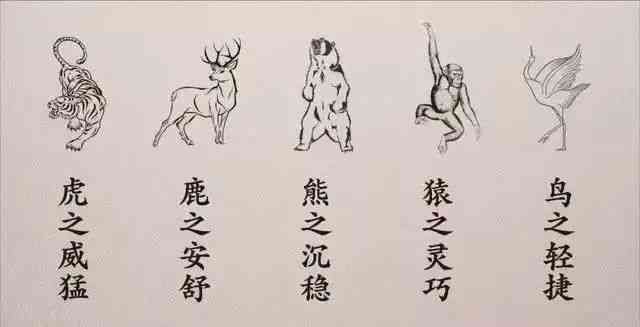 虎之威猛
鹿之安舒
熊之沉稳
猿之灵巧
鸟之轻捷